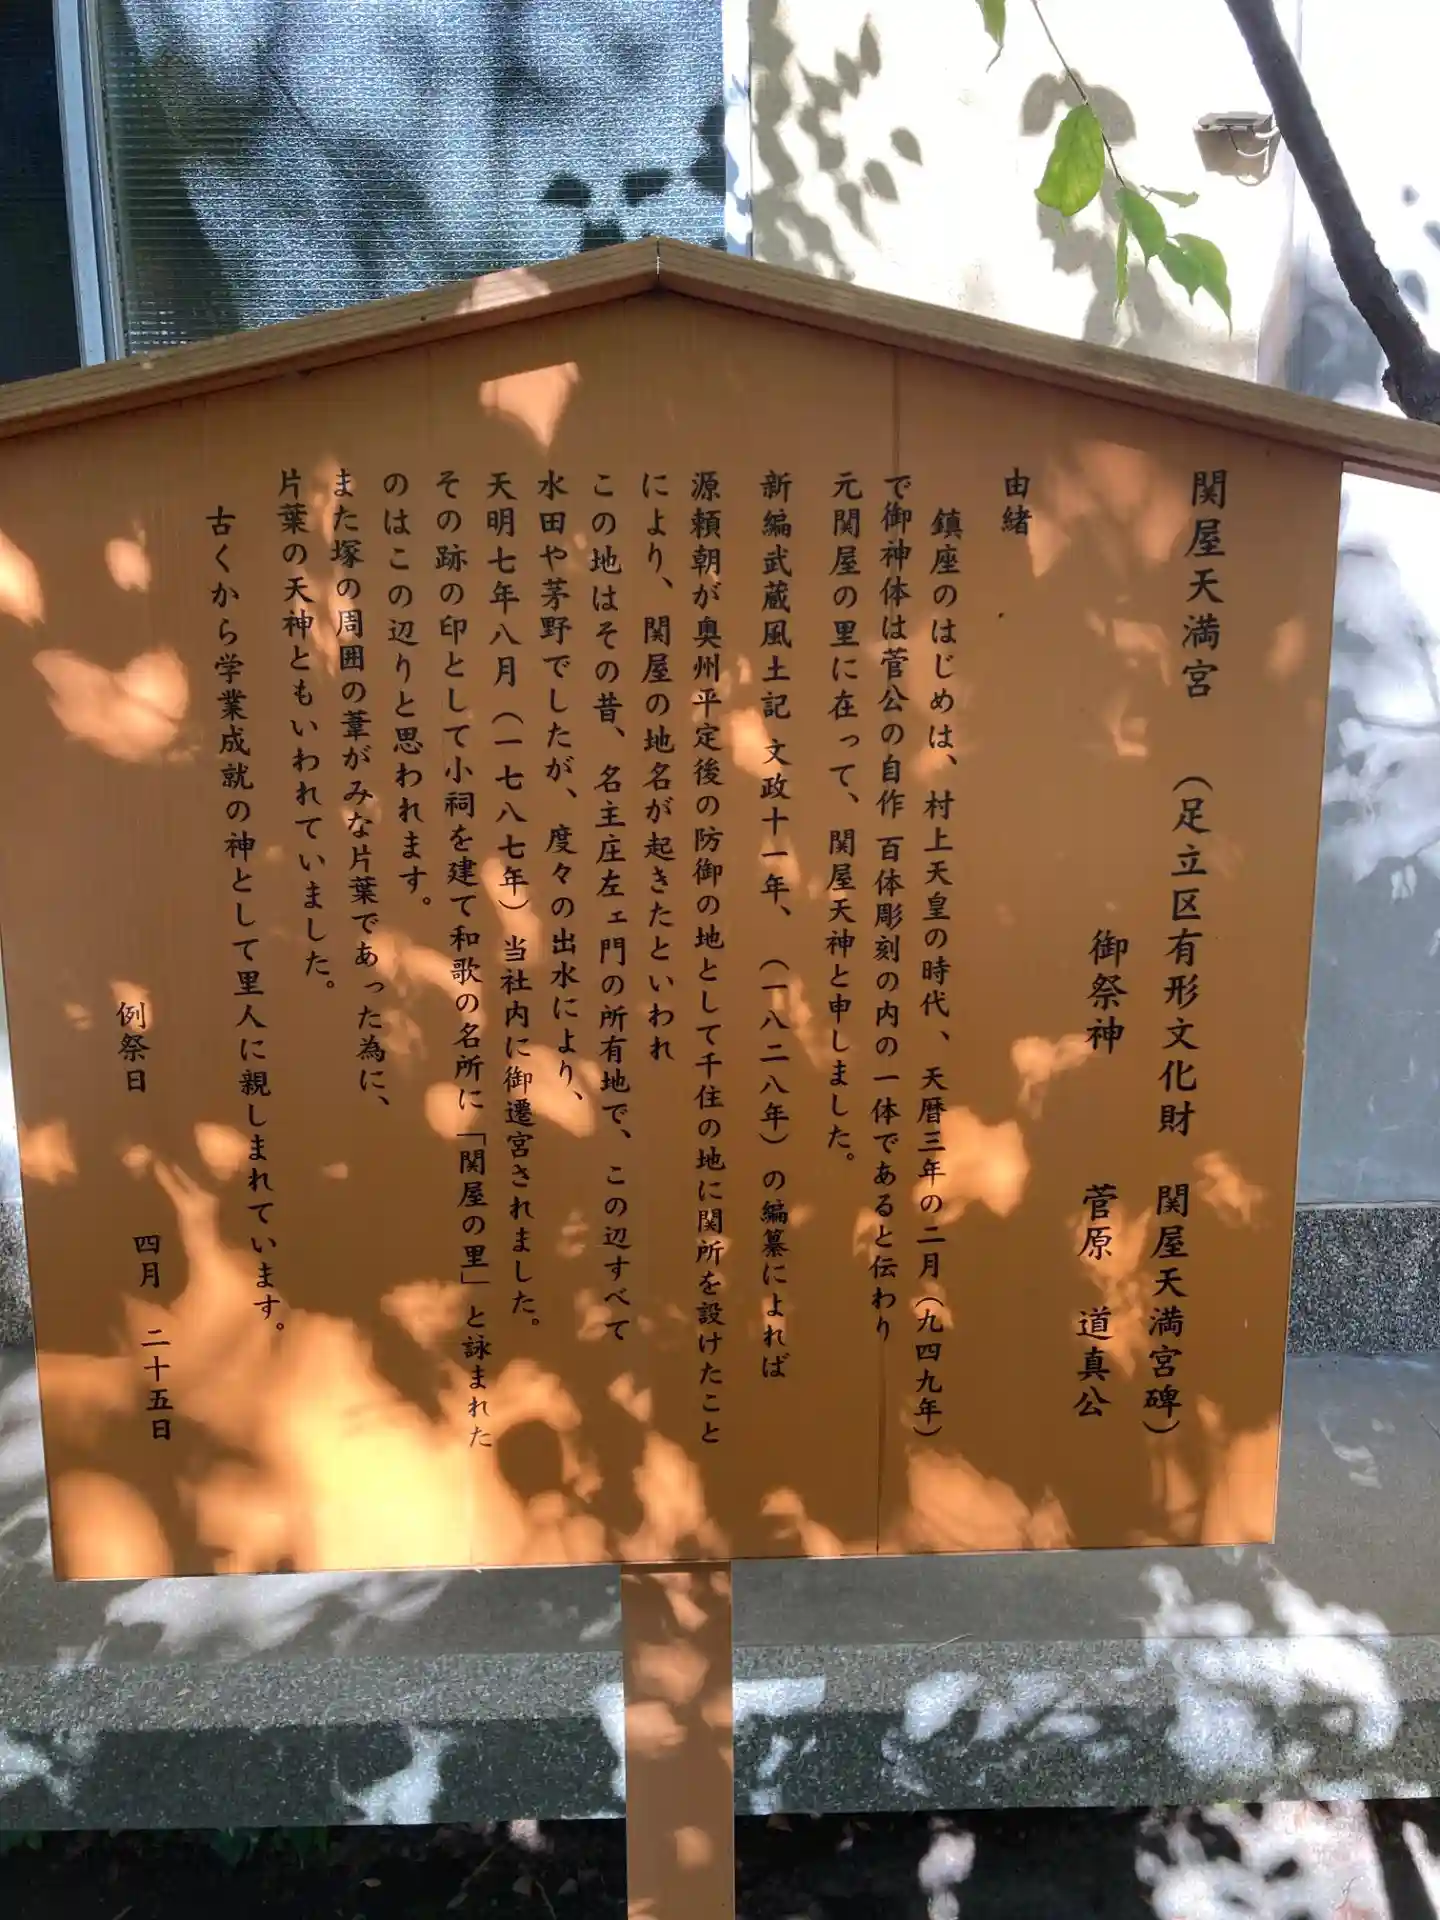 関屋天満宮　（足立区有形文化財　関屋天満宮碑）
御祭神　菅原　道真公
由緒
鎮座のはじめは、村上天皇の時代、天暦三年の二月（九四九年）
で御神体は菅公の自作 百体彫刻の内の一体であると伝わり
元関屋の里に在って、関屋天神と申しました。
新編武蔵風土記 文政十一年、（一八二八年）の編纂によれば
源頼朝が奥州平定後の防御の地として千住の地に関所を設けたこと
により、関屋の地名が起きたといわれ
この地はその昔、名主庄左ェ門の所有地で、この辺すべて
水田や茅野でしたが、度々の出水により、
天明七年八月（一七八七年）当社内に御遷宮されました。
その跡の印として小祠を建て和歌の名所に「関屋の里」と詠まれた
のはこの辺りと思われます。
また塚の周囲の葦がみな片葉であった為に、
片葉の天神ともいわれていました。
古くから学業成就の神として里人に親しまれています。
例祭日　四月　二十五日